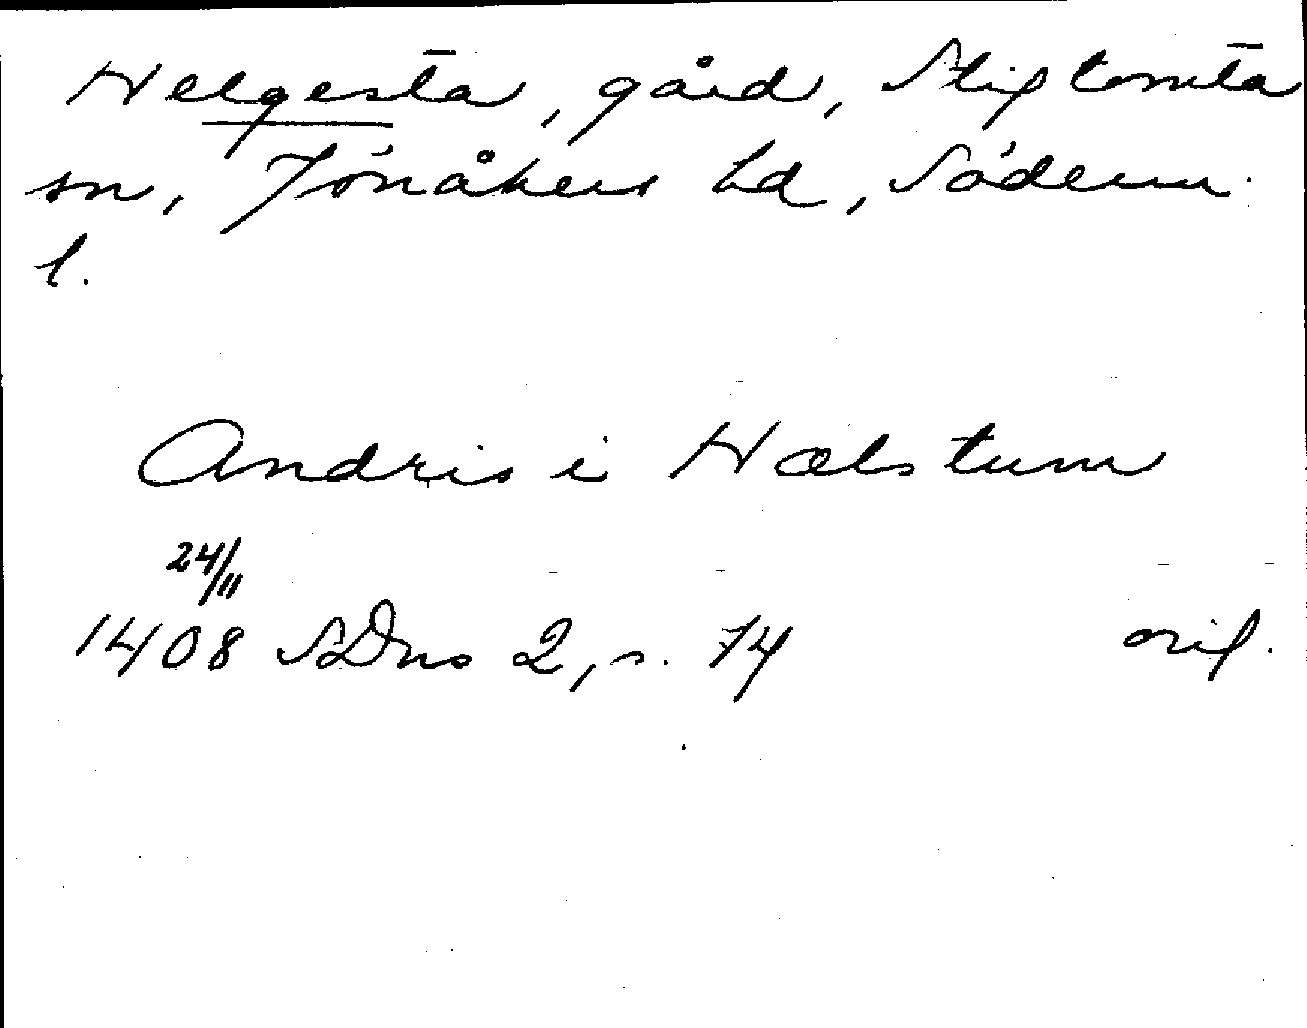 Helgesta, gård, Stigtomta
sn, Jönåkers hd, Söderm.
l.
Andris i Hælstum
24/11
1408 SDns 2, s. 74 orig.